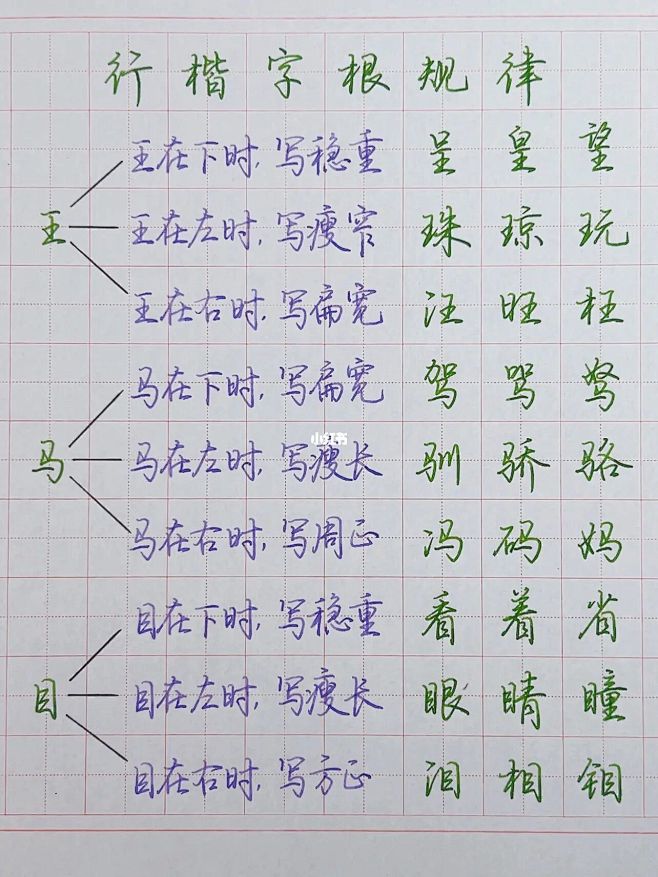 行楷字根规律
王在下时,写稳重 呈 皇 望
王 王在左时,写瘦窄 珠 琼 玩
王在右时,写扁宽 汪 旺 枉
马在下时,写扁宽 驾 骂 驽
小红书
马 马在左时,写瘦长 驯 骄 骆
马在右时,写周正 冯 码 妈
目在下时,写稳重 看 着 省
目 目在左时,写瘦长 眼 睛 瞳
目在右时,写方正 泪 相 钼